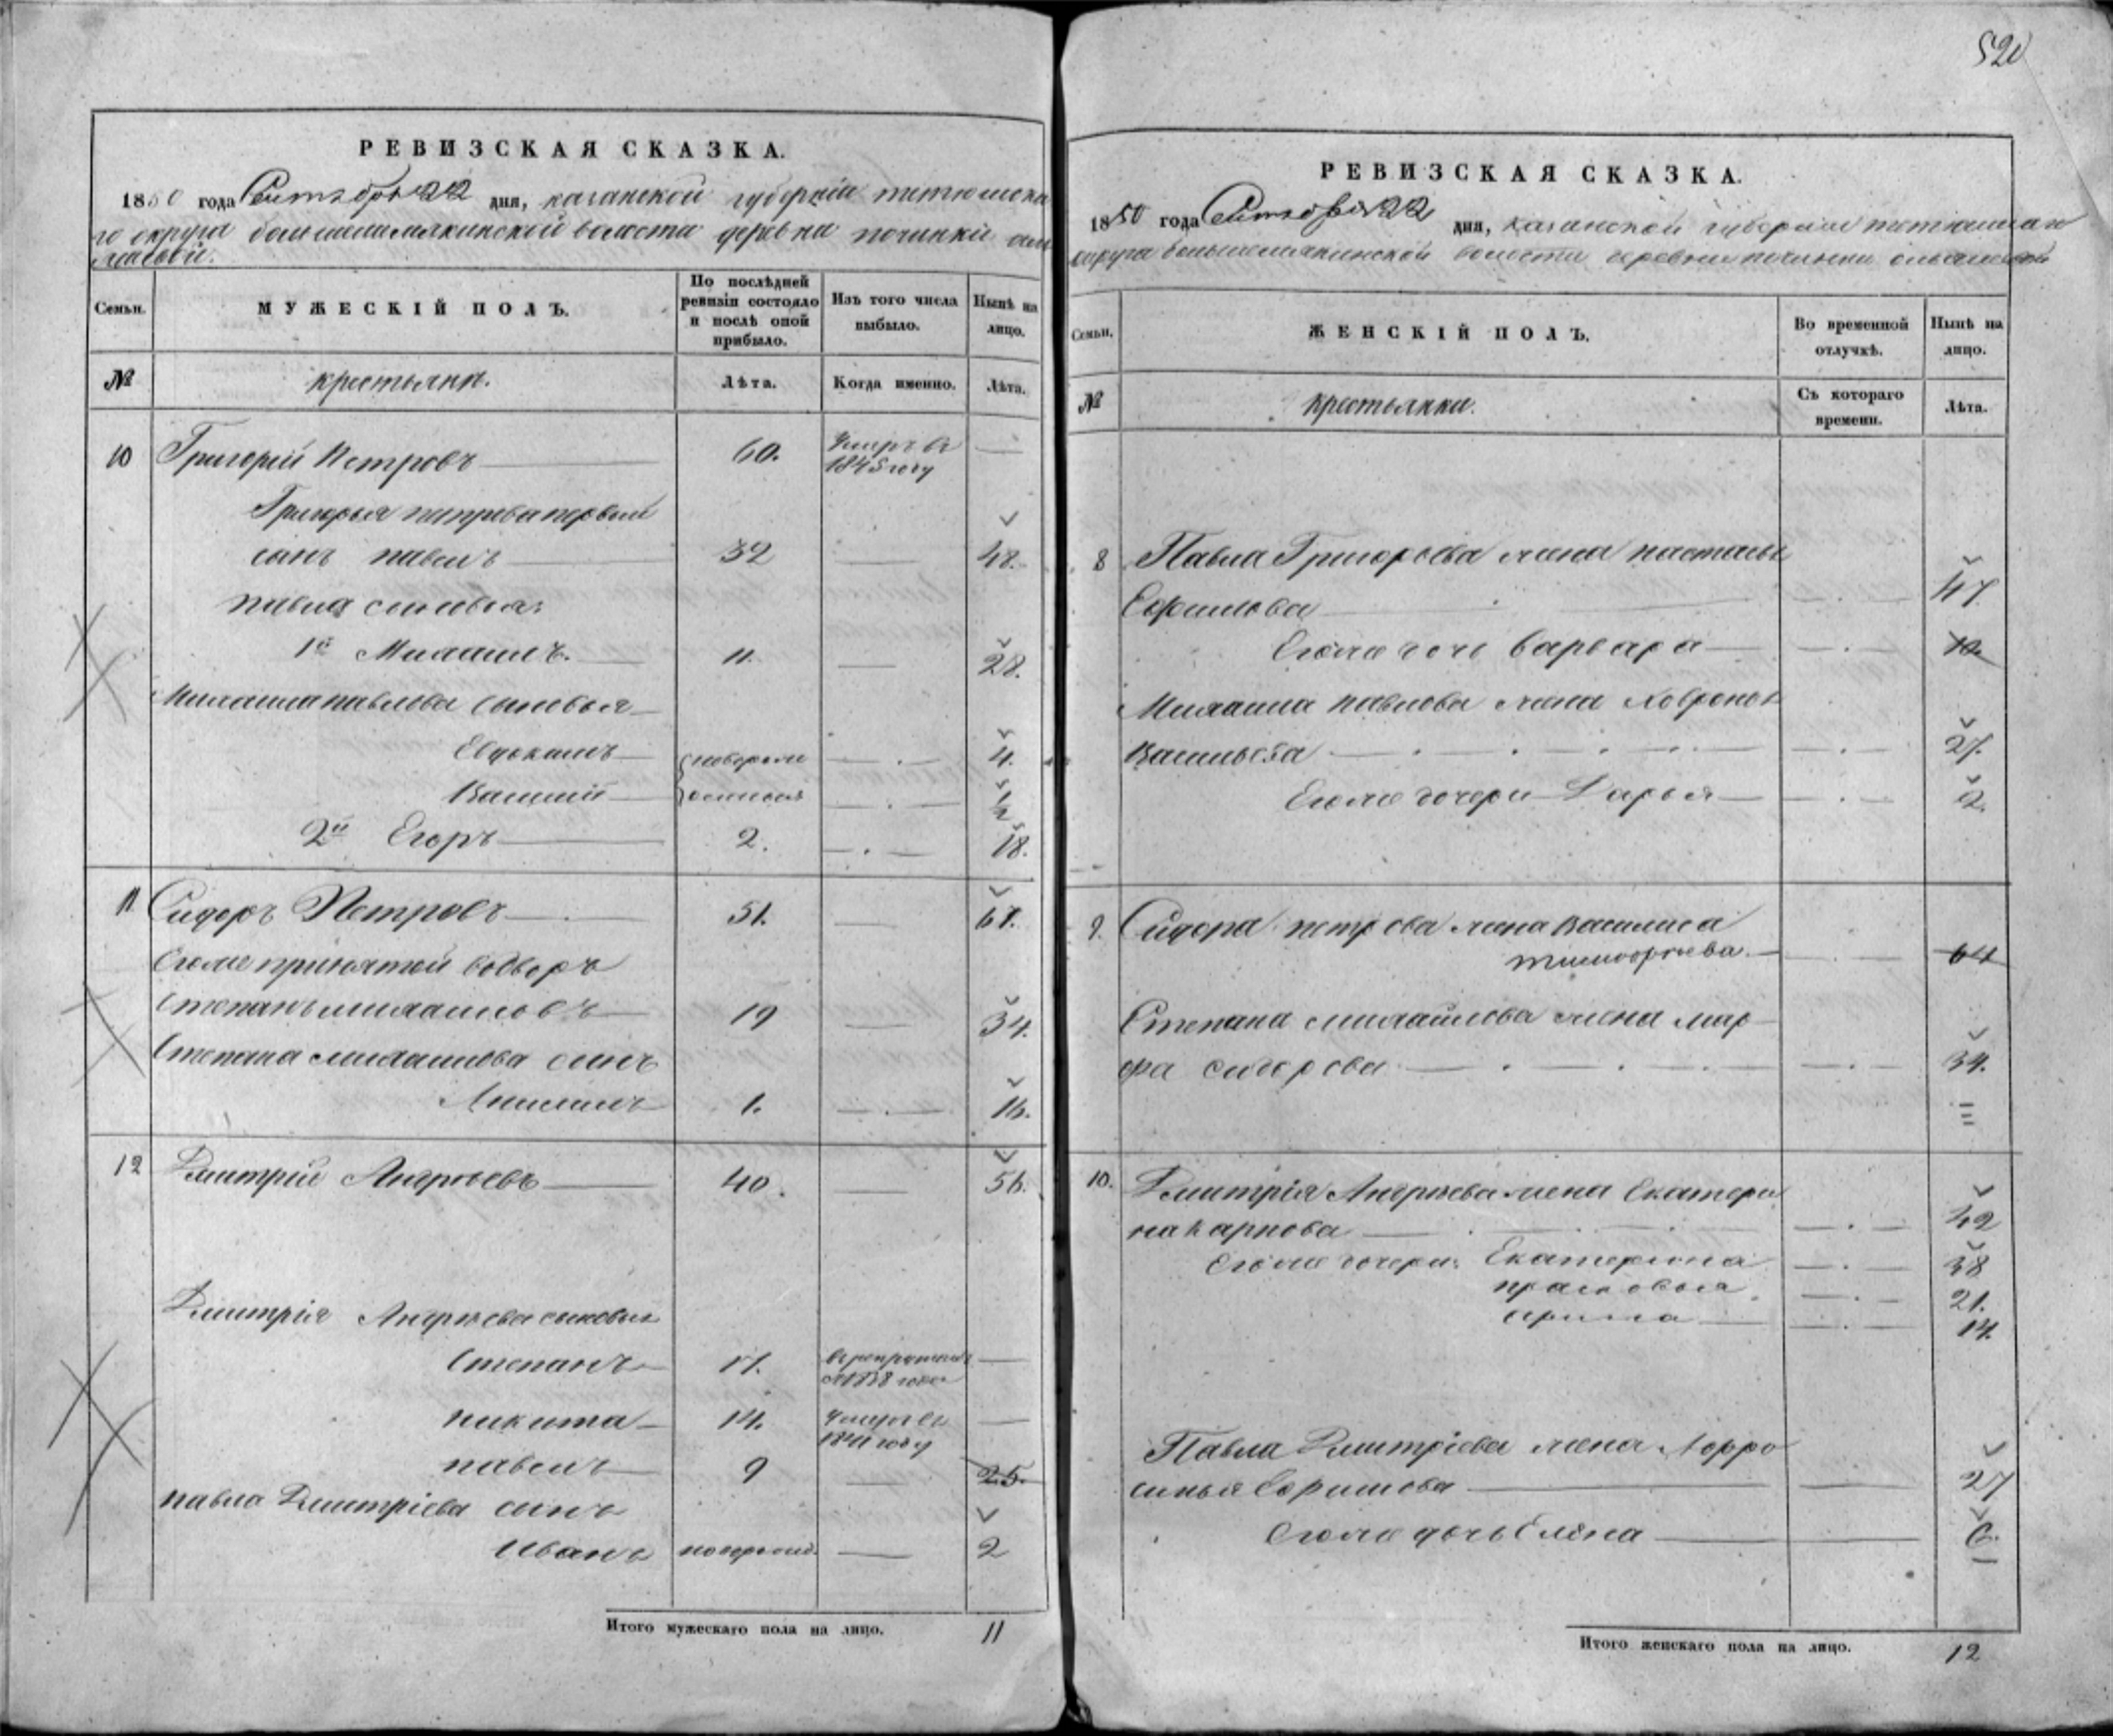 520
РЕВИЗСКАЯ СКАЗКА.
1850 года Сентября 22 дня, казанской губерніи тетюшска
го округа большешемякинской волости деревни починки
Семьи.
МУЖЕСКІЙ ПОЛЪ.
По послѣдней ревизіи состояло и послѣ оной прибыло.
Изъ того числа выбыло.
Нынѣ на лицо.
№
крестьяне.
Лѣта.
Когда именно.
Лѣта.
10 Григорей Петровъ 60. Умеръ въ 1845 году
Григорья петрова первой
сынъ павелъ 32 48.
павла сыновья:
1й Михаилъ. 11. 28.
Михаила павлова сыновья
Евдокимъ 4.
Василий 1/2
2й Егоръ 2. 18.
11 Сидоръ Петровъ 51. 67.
Егоже принятой
Степанъ михаиловъ 19 34.
Степана михаилова сынъ
1. 16.
12 Дмитрий Андреевъ 40. 56.
Дмитрія Андреева сыновья
Степанъ 17. 1838 года
никита 14. Умеръ въ 1841 году
павелъ 9 25.
павла Дмитріева сынъ
Иванъ 2
Итого мужескаго пола на лицо. 11
РЕВИЗСКАЯ СКАЗКА.
1850 года Сентября 22 дня, казанской губернии тетюшскаго
округа большешемякинской волости деревни починки
Семьи.
ЖЕНСКІЙ ПОЛЪ.
Во временной отлучкѣ.
Нынѣ на лицо.
№
крестьянки.
Съ котораго времени.
Лѣта.
8 Павла Григорьева жена настасья
Ефимова 47.
Егоже дочь Варвара 10.
Михаила павлова жена
Васильева 27.
Егоже дочери Дарья 2.
9. Сидора петрова жена Василиса
64
Степана михайлова жена мар
фа сидорова 34.
10. Дмитрія Андреева жена Екатери
на карпова 42
Егоже дочери: Екатерина 38
прасковья 21.
ирина 14.
Павла Дмитріева жена
Ефимова 27
Егоже дочь Елена 6.
Итого женскаго пола на лицо. 12